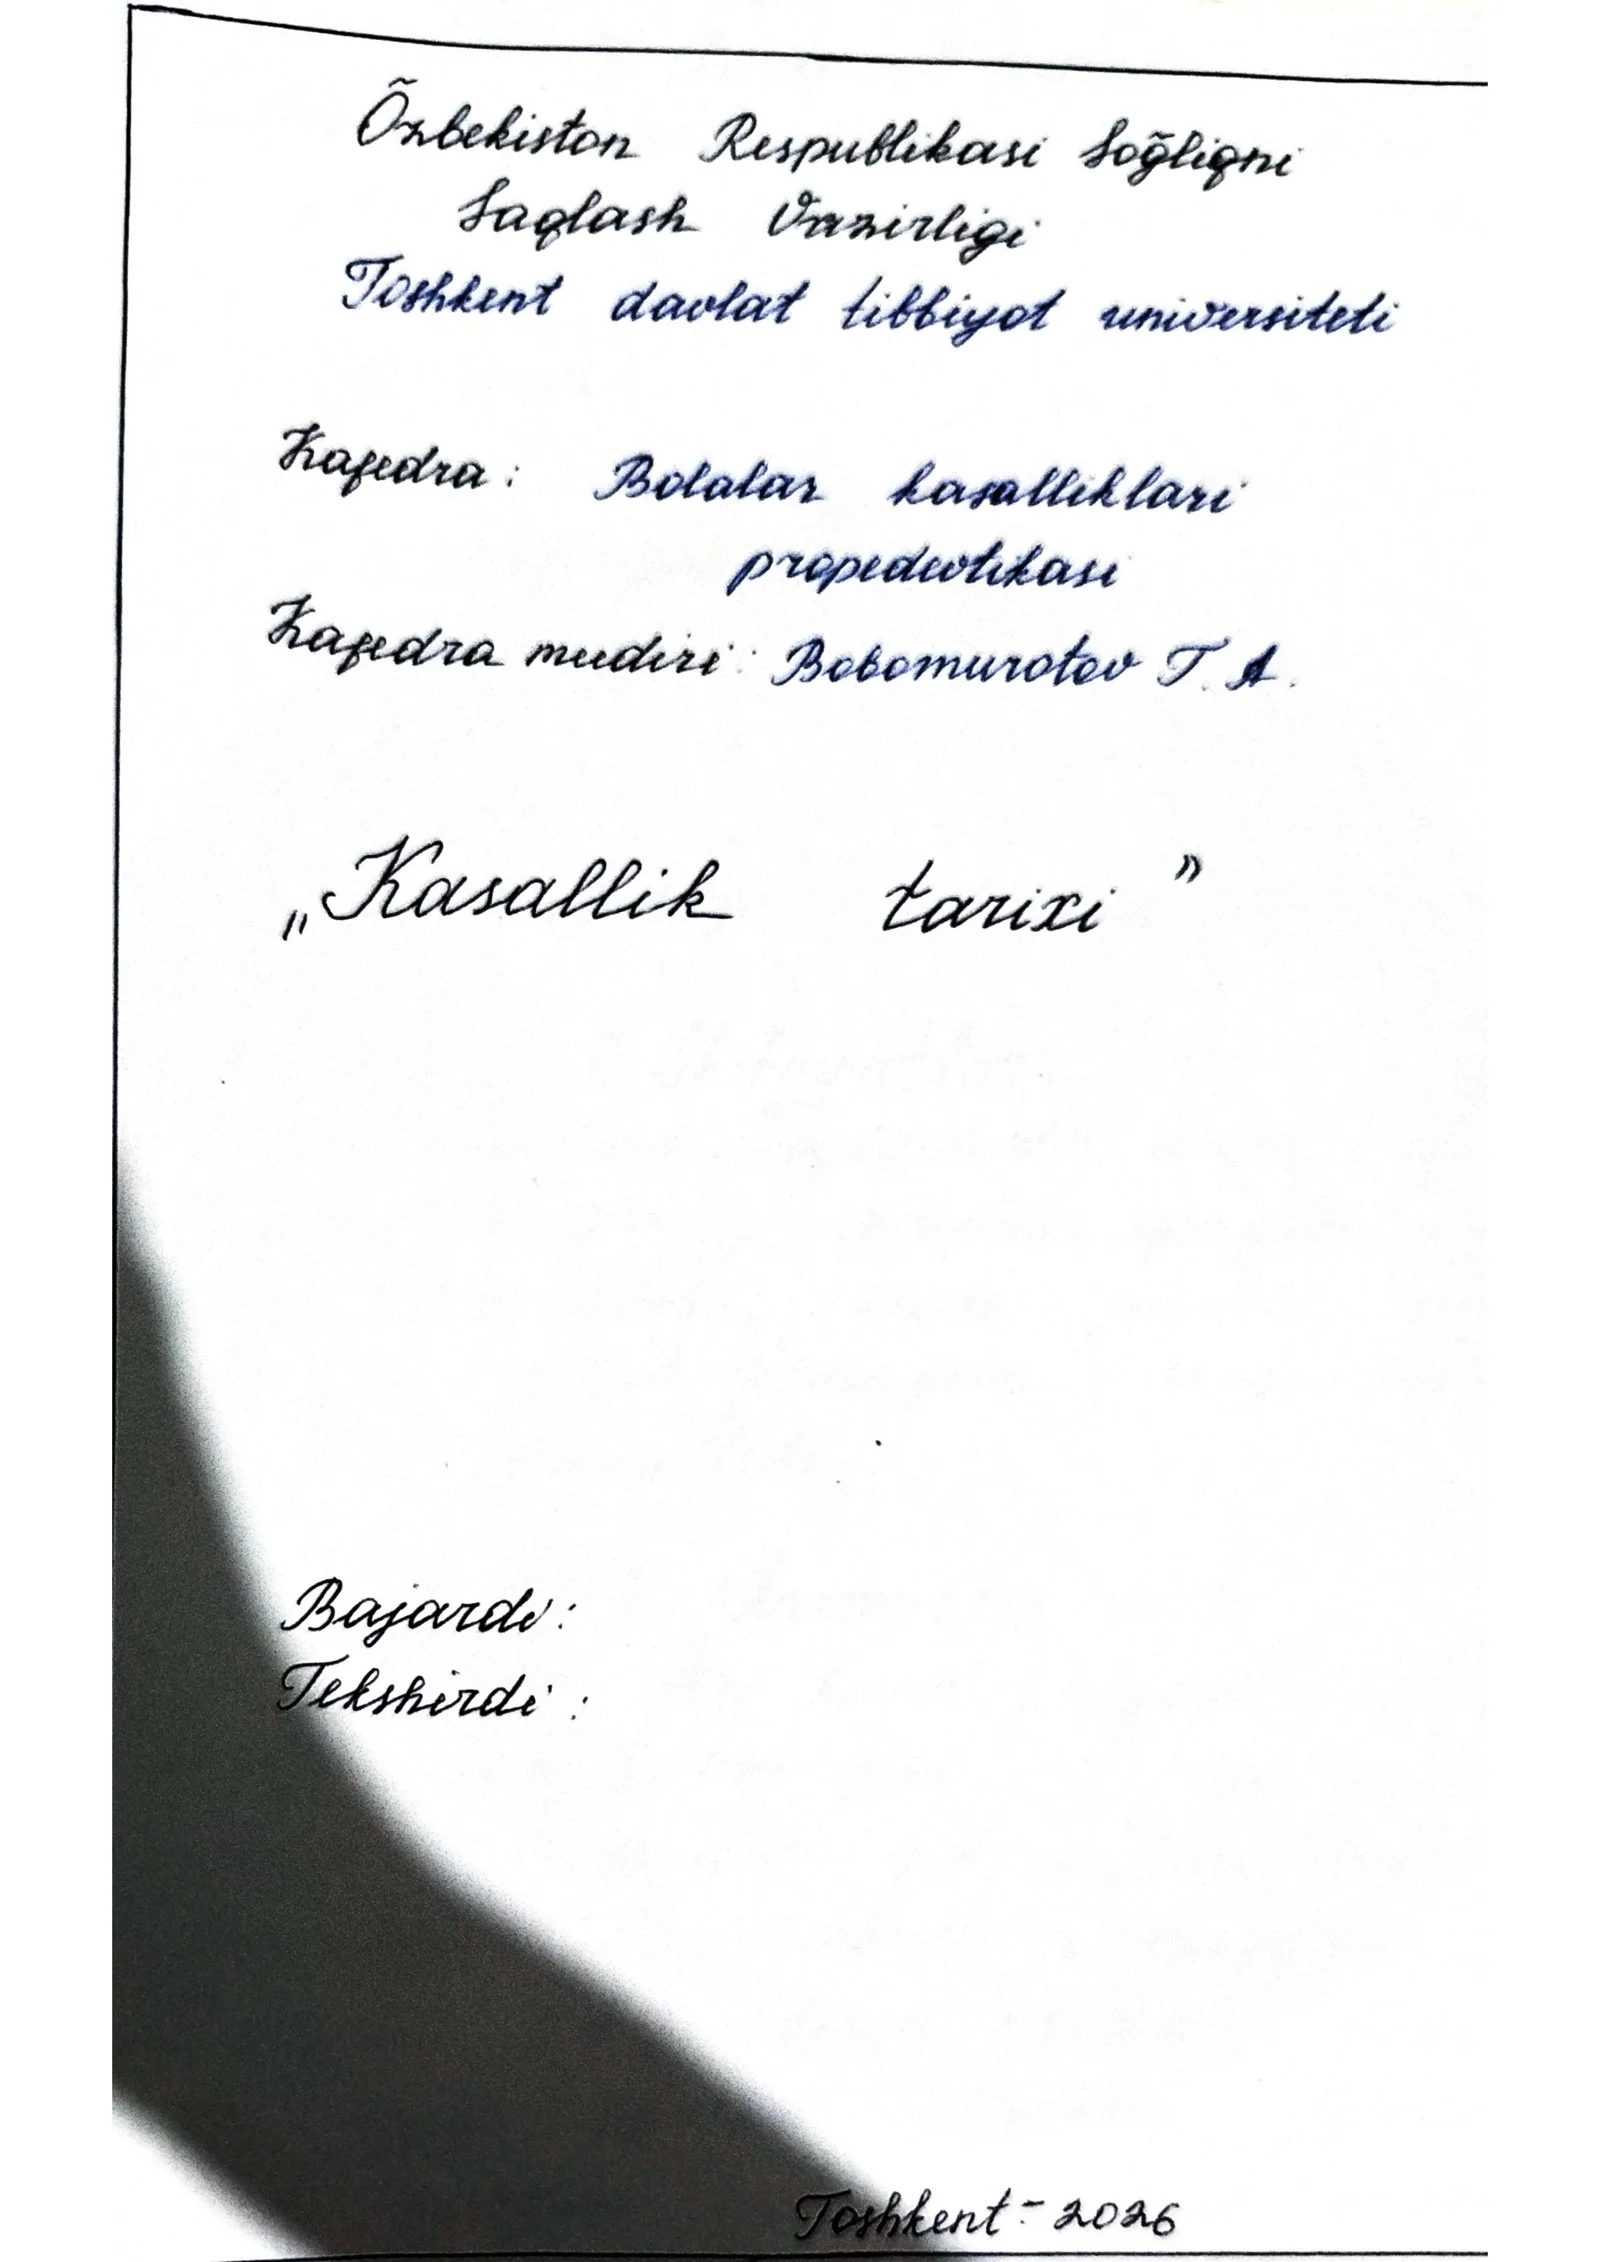 Õzbekiston Respublikasi Sog̃liqni
Saqlash Vazirligi
Toshkent davlat tibbiyot universiteti
Kafedra: Bolalar kasalliklari
propedevtikasi
Kafedra mudiri: Bobomurotov T. A.
„Kasallik tarixi”
Bajardi:
Tekshirdi:
Toshkent-2026